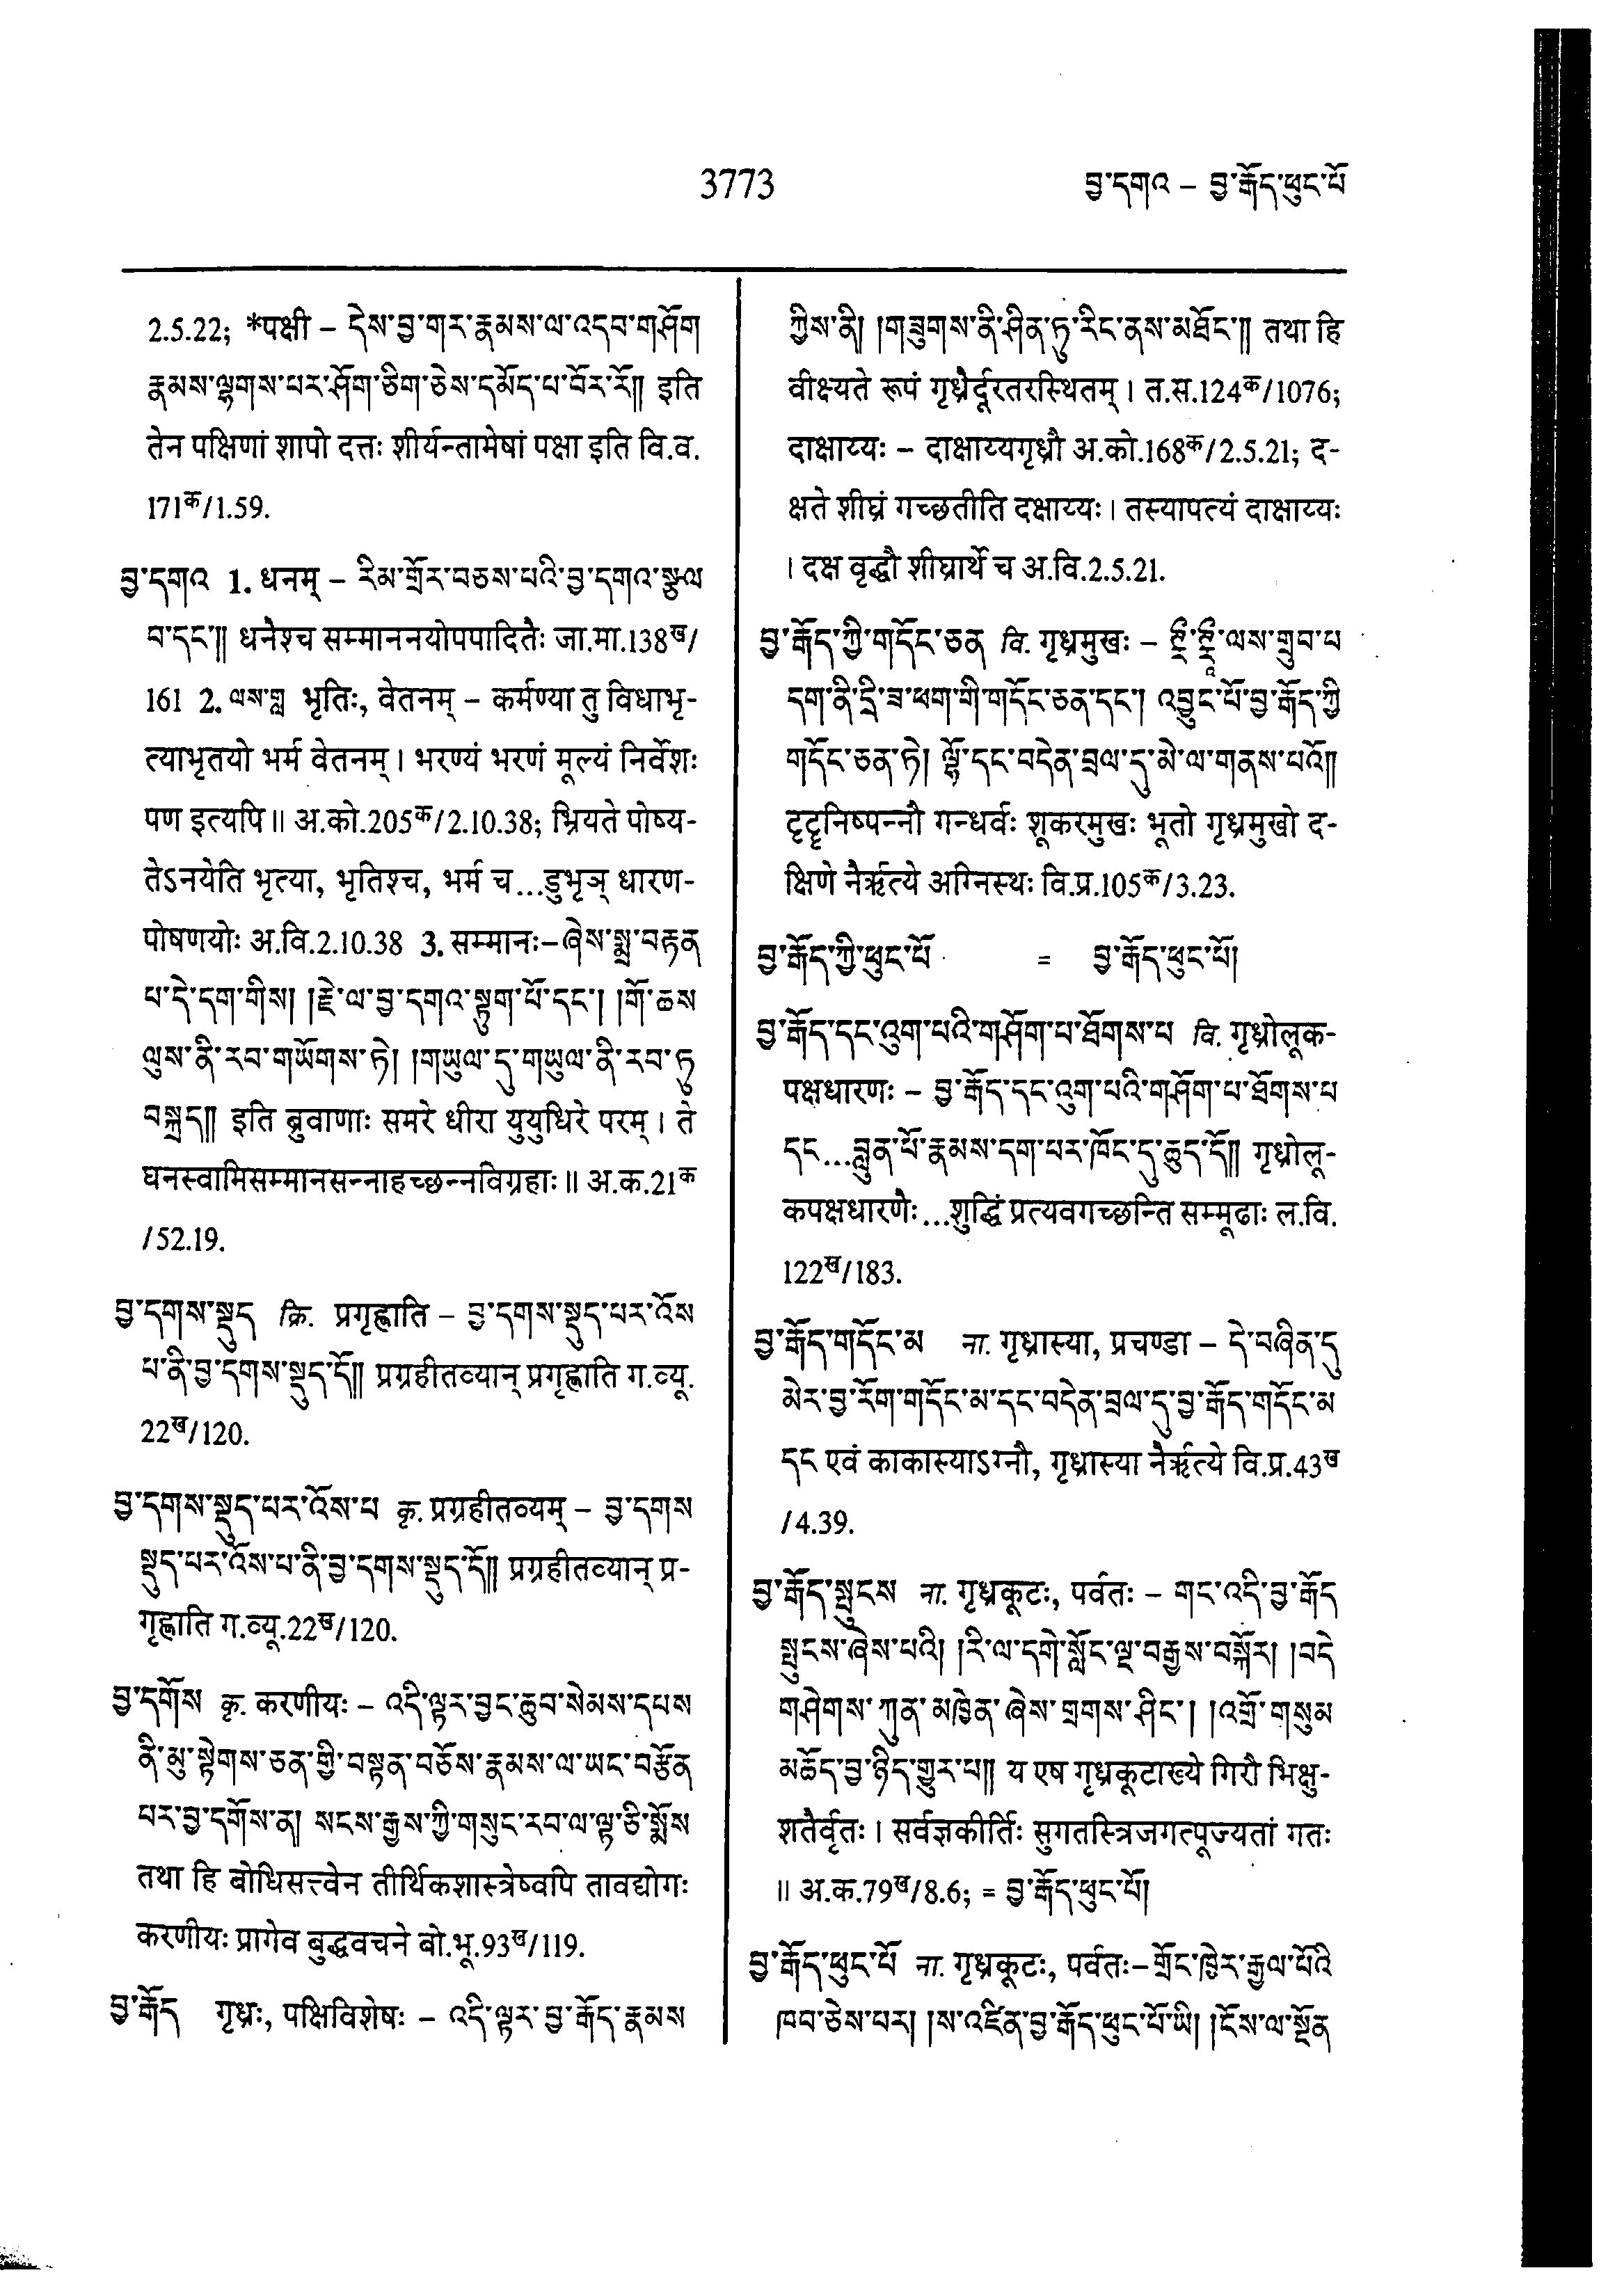 3773
བྱ་དགའ – བྱ་རྒོད་ཕུང་པོ
2.5.22; *पक्षी – དེས་བྱ་གར་རྣམས་ལ་འདབ་གཤོག
རྣམས་ལྷགས་པར་ཤོག་ཅིག་ཅེས་དམོད་པ་བོར་རོ།། इति
तेन पक्षिणां शापो दत्तः शीर्यन्तामेषां पक्षा इति वि.व.
171क/1.59.
བྱ་དགའ 1. धनम् – རིམ་གྲོར་བཅས་པའི་བྱ་དགའ་སྩལ
བ་དང་།། धनैश्च सम्माननयोपपादितैः जा.मा.138ख/
161 2. ལས་གླ भृतिः, वेतनम् – कर्मण्या तु विधाभृ-
त्याभृतयो भर्म वेतनम्। भरण्यं भरणं मूल्यं निर्वेशः
पण इत्यपि॥ अ.को.205क/2.10.38; भ्रियते पोष्य-
तेऽनयेति भृत्या, भृतिश्च, भर्म च...डुभृञ् धारण-
पोषणयोः अ.वि.2.10.38 3. सम्मानः–ཞེས་སྨྲ་བརྟན
པ་དེ་དག་གིས། །རྗེ་ལ་བྱ་དགའ་སྟུག་པོ་དང་། །གོ་ཆས
ལུས་ནི་རབ་གཡོགས་ཏེ། །གཡུལ་དུ་གཡུལ་ནི་རབ་ཏུ
བསྐྲད།། इति ब्रुवाणाः समरे धीरा युयुधिरे परम्। ते
घनस्वामिसम्मानसन्नाहच्छन्नविग्रहाः॥ अ.क.21क
/52.19.
བྱ་དགས་སྡུད क्रि. प्रगृह्णाति – བྱ་དགས་སྡུད་པར་འོས
པ་ནི་བྱ་དགས་སྡུད་དོ།། प्रग्रहीतव्यान् प्रगृह्णाति ग.व्यू.
22ख/120.
བྱ་དགས་སྡུད་པར་འོས་པ कृ. प्रग्रहीतव्यम् – བྱ་དགས
སྡུད་པར་འོས་པ་ནི་བྱ་དགས་སྡུད་དོ།། प्रग्रहीतव्यान् प्र-
गृह्णाति ग.व्यू.22ख/120.
བྱ་དགོས कृ. करणीयः – འདི་ལྟར་བྱང་ཆུབ་སེམས་དཔས
ནི་མུ་སྟེགས་ཅན་གྱི་བསྟན་བཅོས་རྣམས་ལ་ཡང་བརྩོན
པར་བྱ་དགོས་ན། སངས་རྒྱས་ཀྱི་གསུང་རབ་ལ་ལྟ་ཅི་སྨོས
तथा हि बोधिसत्त्वेन तीर्थिकशास्त्रेष्वपि तावद्योगः
करणीयः प्रागेव बुद्धवचने बो.भू.93ख/119.
བྱ་རྒོད गृध्रः, पक्षिविशेषः – འདི་ལྟར་བྱ་རྒོད་རྣམས
ཀྱིས་ནི། །གཟུགས་ནི་ཤིན་ཏུ་རིང་ནས་མཐོང་།། तथा हि
वीक्ष्यते रूपं गृध्रैर्दूरतरस्थितम्। त.स.124क/1076;
दाक्षाय्यः – दाक्षाय्यगृध्रौ अ.को.168क/2.5.21; द-
क्षते शीघ्रं गच्छतीति दक्षाय्यः। तस्यापत्यं दाक्षाय्यः
। दक्ष वृद्धौ शीघ्रार्थे च अ.वि.2.5.21.
བྱ་རྒོད་ཀྱི་གདོང་ཅན वि. गृध्रमुखः – ལས་གྲུབ་པ
དག་ནི་དྲི་ཟ་ཕག་གི་གདོང་ཅན་དང་། འབྱུང་པོ་བྱ་རྒོད་ཀྱི
གདོང་ཅན་ཏེ། ལྷོ་དང་བདེན་བྲལ་དུ་མེ་ལ་གནས་པའོ།།
टृटॄनिष्पन्नौ गन्धर्वः शूकरमुखः भूतो गृध्रमुखो द-
क्षिणे नैर्ऋत्ये अग्निस्थः वि.प्र.105क/3.23.
བྱ་རྒོད་ཀྱི་ཕུང་པོ = བྱ་རྒོད་ཕུང་པོ།
བྱ་རྒོད་དང་འུག་པའི་གཤོག་པ་ཐོགས་པ वि. गृध्रोलूक-
पक्षधारणः – བྱ་རྒོད་དང་འུག་པའི་གཤོག་པ་ཐོགས་པ
དང...བླུན་པོ་རྣམས་དག་པར་ཁོང་དུ་ཆུད་དོ།། गृध्रोलू-
कपक्षधारणैः...शुद्धिं प्रत्यवगच्छन्ति सम्मूढाः ल.वि.
122ख/183.
བྱ་རྒོད་གདོང་མ ना. गृध्रास्या, प्रचण्डा – དེ་བཞིན་དུ
མེར་བྱ་རོག་གདོང་མ་དང་བདེན་བྲལ་དུ་བྱ་རྒོད་གདོང་མ
དང एवं काकास्याऽग्नौ, गृध्रास्या नैर्ऋत्ये वि.प्र.43ख
/4.39.
བྱ་རྒོད་སྤུངས ना. गृध्रकूटः, पर्वतः – གང་འདི་བྱ་རྒོད
སྤུངས་ཞེས་པའི། །རི་ལ་དགེ་སློང་ལྔ་བརྒྱས་བསྐོར། །བདེ
གཤེགས་ཀུན་མཁྱེན་ཞེས་གྲགས་ཤིང་། །འགྲོ་གསུམ
མཆོད་བྱ་ཉིད་གྱུར་པ།། य एष गृध्रकूटाख्ये गिरौ भिक्षु-
शतैर्वृतः। सर्वज्ञकीर्तिः सुगतस्त्रिजगत्पूज्यतां गतः
॥ अ.क.79ख/8.6; = བྱ་རྒོད་ཕུང་པོ།
བྱ་རྒོད་ཕུང་པོ ना. गृध्रकूटः, पर्वतः–གྲོང་ཁྱེར་རྒྱལ་པོའི
ཁབ་ཅེས་པར། །ས་འཛིན་བྱ་རྒོད་ཕུང་པོ་ཡི། །ངོས་ལ་སྔོན